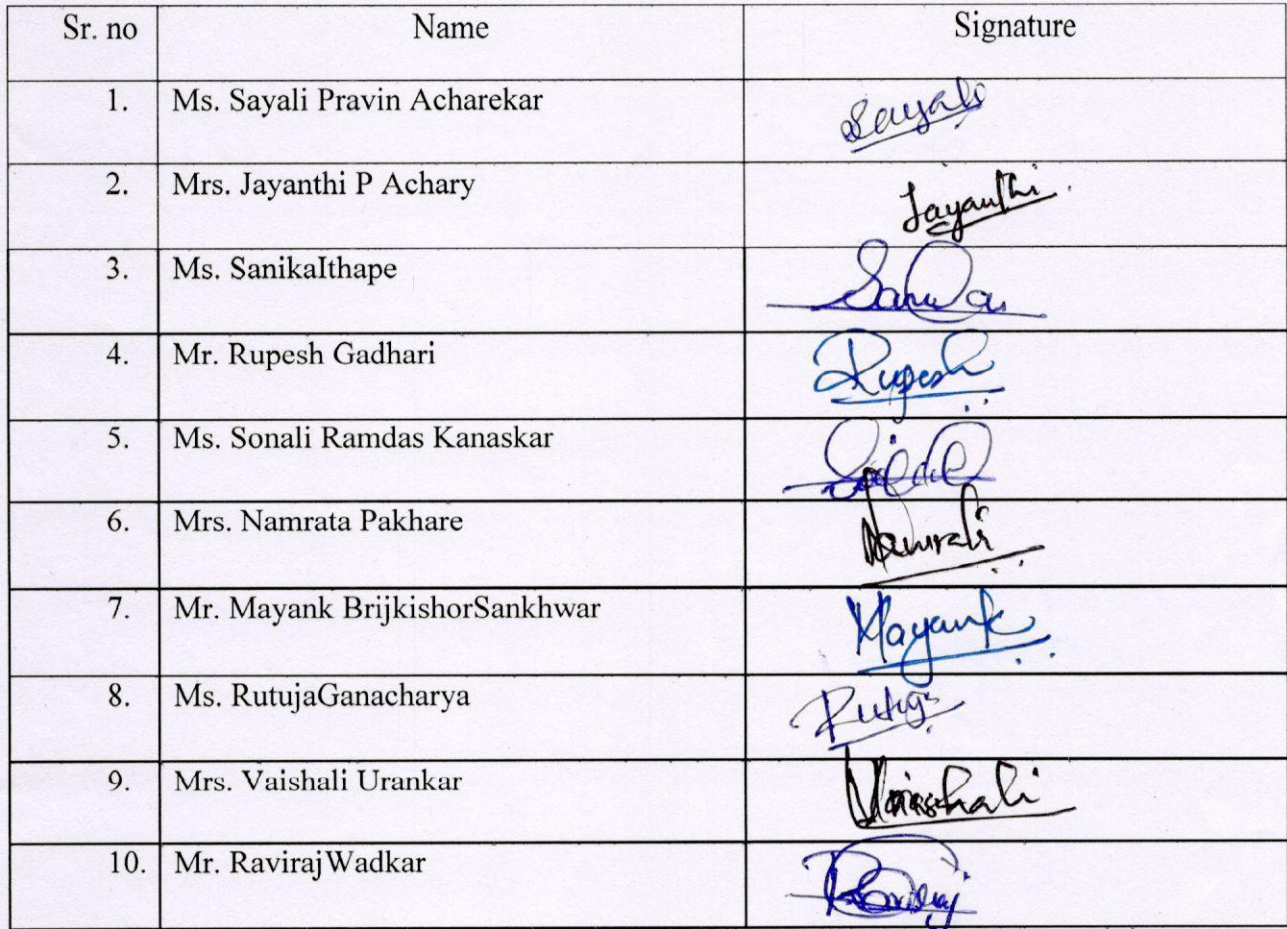 Sr. no Name Signature
1. Ms. Sayali Pravin Acharekar Sayali
2. Mrs. Jayanthi P Achary Jayanthi
3. Ms. SanikaIthape Sanika
4. Mr. Rupesh Gadhari Rupesh
5. Ms. Sonali Ramdas Kanaskar
6. Mrs. Namrata Pakhare
7. Mr. Mayank BrijkishorSankhwar Mayank
8. Ms. RutujaGanacharya
9. Mrs. Vaishali Urankar Vaishali
10. Mr. RavirajWadkar Raviraj